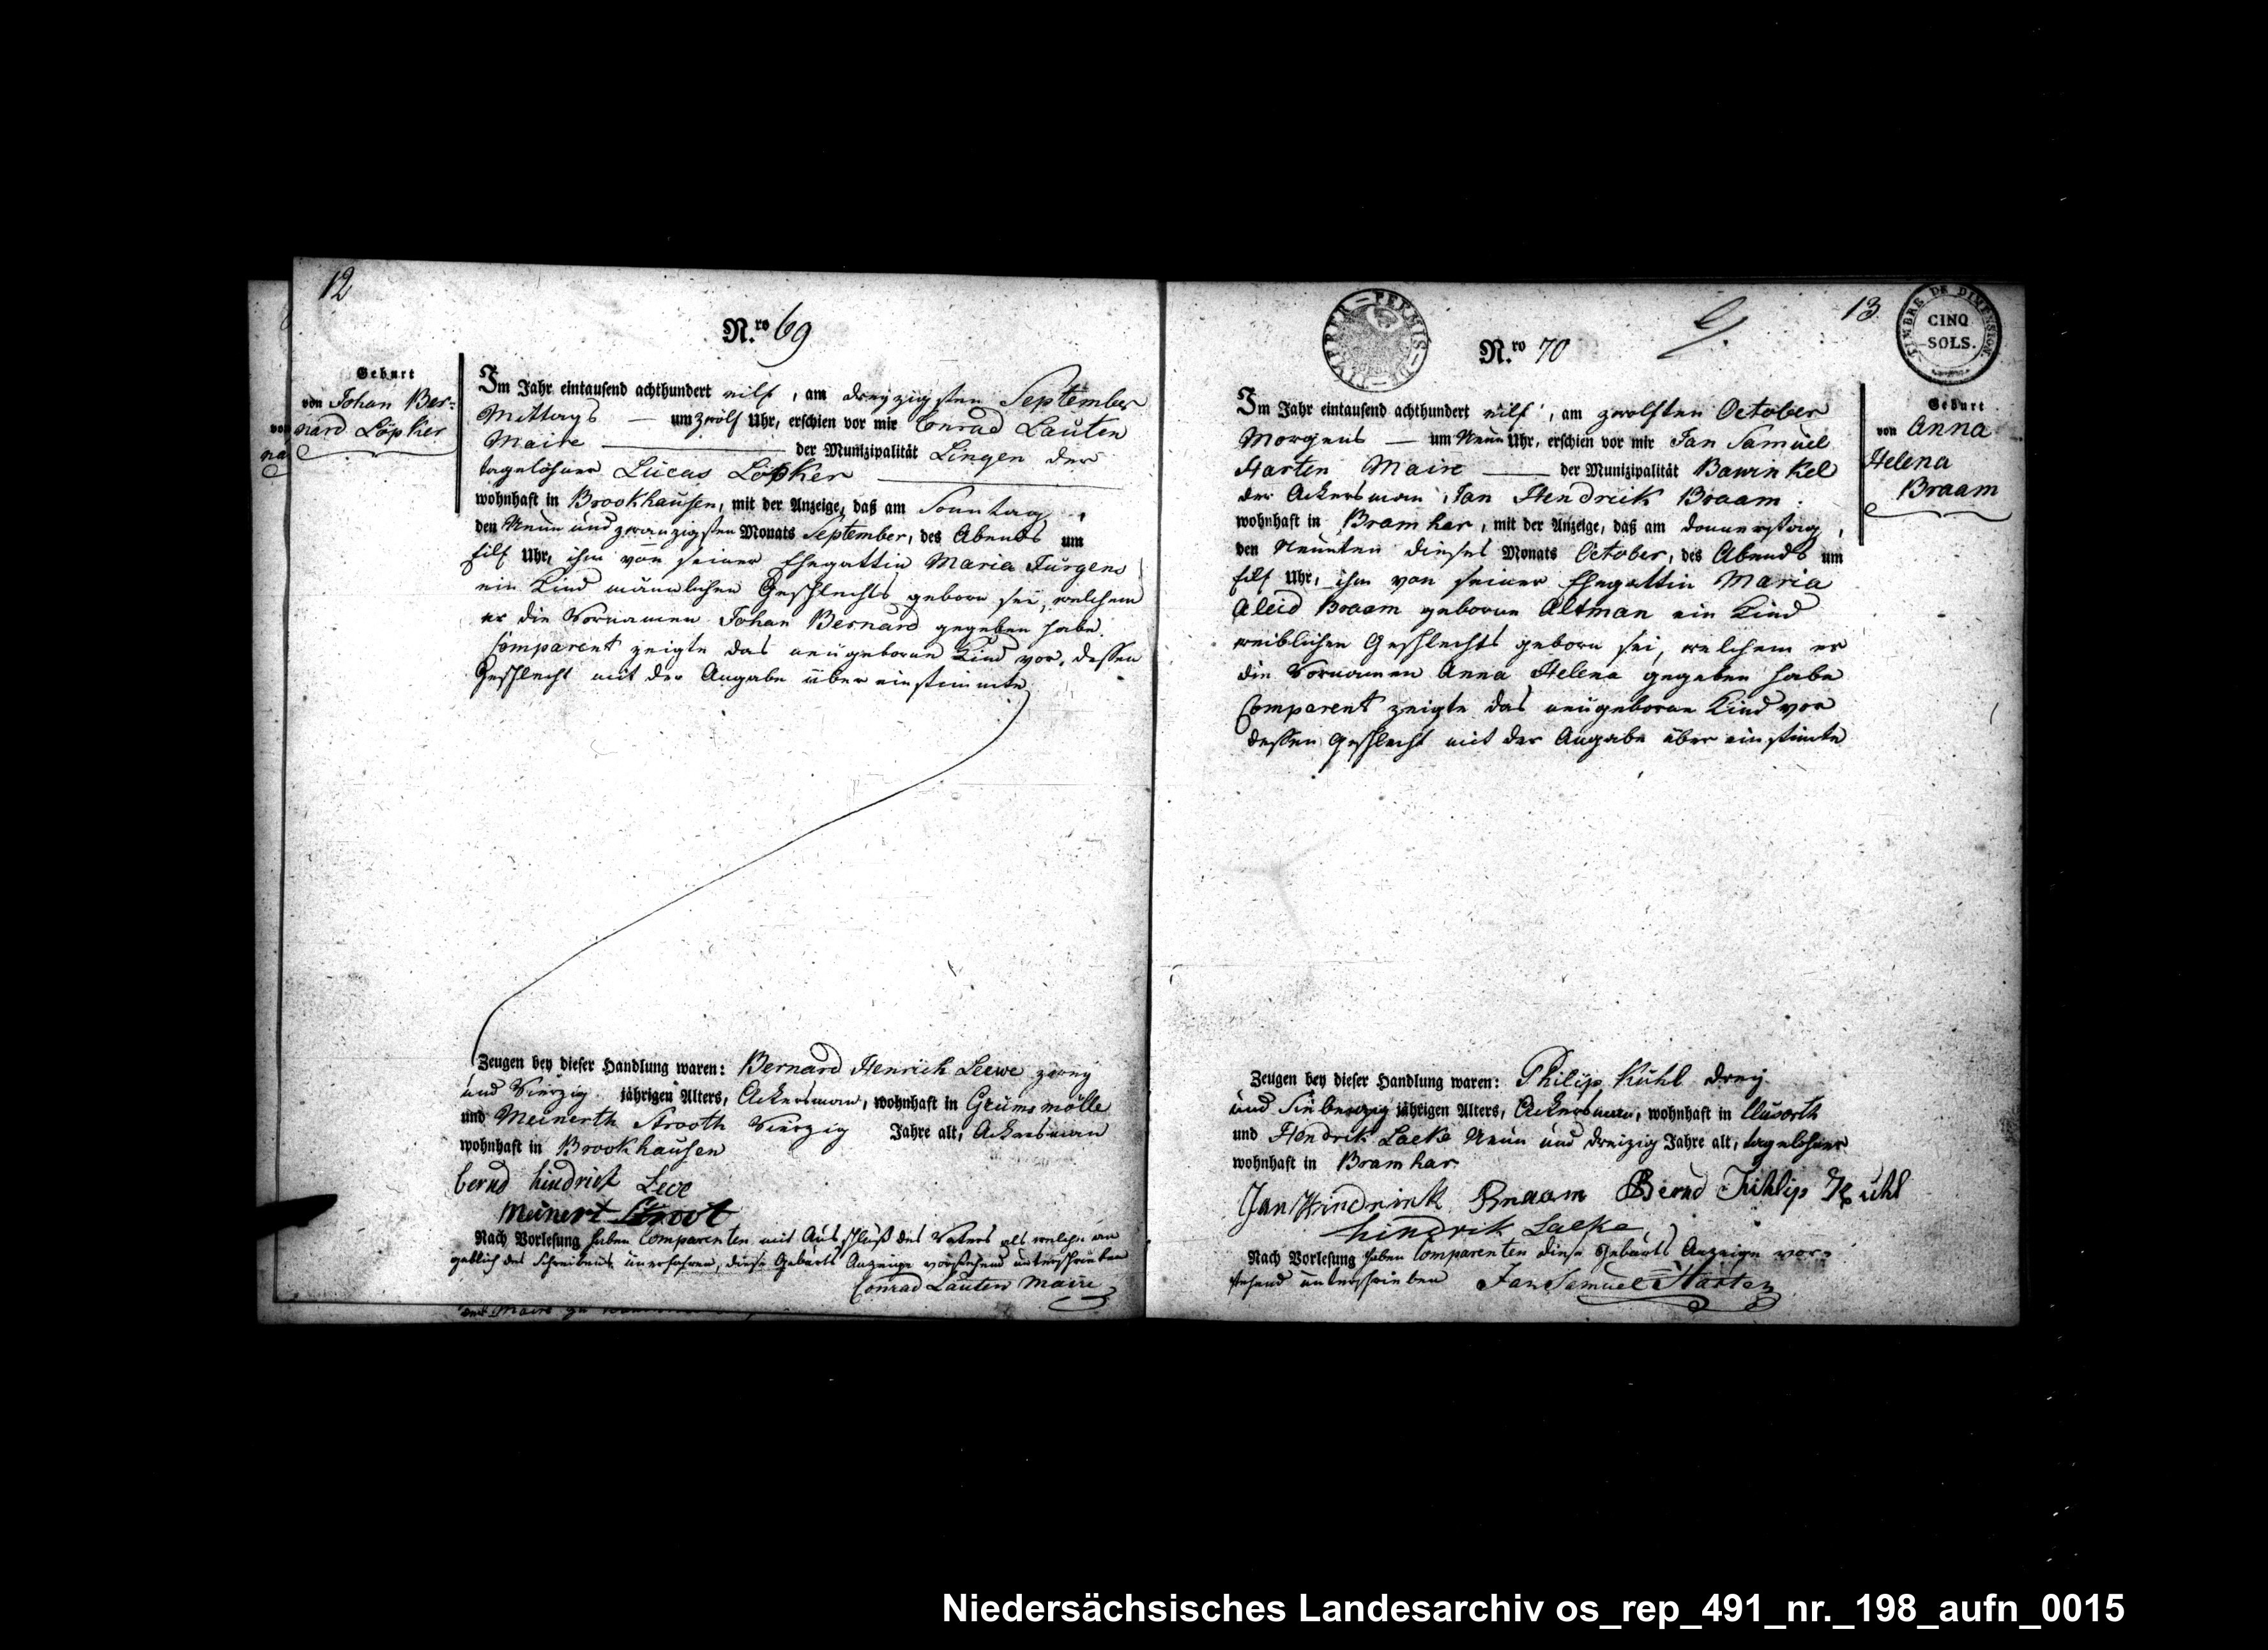 12
N.ro 69
Geburt
von Johan Ber=
nard Löpker
von
na
Im Jahr eintausend achthundert eilf, am dreyzigsten September
Mittags — um zwölf Uhr, erschien vor mir Conrad Lauten
Maire — der Munizipalität Lingen der
tagelöhner Lucas Löpker —
wohnhaft in Brookhausen, mit der Anzeige, daß am Sonntag,
den Neun und zwanzigsten Monats September, des Abends um
Eilf Uhr, ihm von seiner Ehegattin Maria Jürgens
ein Kind männlichen Geschlechts geborn sei, welchem
er die Vornamen Johan Bernard gegeben habe.
Comparent zeigte das neugeborne Kind vor, dessen
Geschlecht mit der Angabe übereinstimmte
Zeugen bey dieser Handlung waren: Bernard Henrich Leewe zwey
und Vierzig jährigen Alters, Ackersman, wohnhaft in Grumsmölle
und Meinerth Strooth Vierzig Jahre alt, Ackersman
wohnhaft in Brookhausen
bernd hindrich Leve
Meinert Stroot
Nach Vorlesung haben Comparenten mit Ausschluß des Vaters als welcher an
geblich des Schreibens unerfahren, diese Geburts Anzeige vorstehend unterschrieben
Conrad Lauten Maire
PERMIS DE TIMBRER
N.ro 70
13
TIMBRE DE DIMENSION
CINQ
SOLS.
Geburt
von Anna
Helena
Braam
Im Jahr eintausend achthundert eilf, am zwölften October
Morgens — um Neun Uhr, erschien vor mir Jan Samuel
Harten Maire — der Munizipalität Bawinkel
der Ackersman Jan Hendrick Braam
wohnhaft in Bramhar, mit der Anzeige, daß am donnerstag,
den Neunten dieses Monats October, des Abends um
Eilf Uhr, ihm von seiner Ehegattin Maria
Aleid Braam geborne Altman ein Kind
weiblichen Geschlechts geborn sei, welchem er
die Vornamen Anna Helena gegeben habe
Comparent zeigte das neugeborne Kind vor
dessen Geschlecht mit der Angabe übereinstimte
Zeugen bey dieser Handlung waren: Philip Kuhl drey
und Siebenzig jährigen Alters, Ackersman, wohnhaft in Clusorth
und Hendrik Laeke Neun und dreizig Jahre alt, tagelohner
wohnhaft in Bramhar
Jan Hindrink Braam Bernd Fihlip Kuhl
hindrik Laeke
Nach Vorlesung haben Comparenten diese Geburts Anzeige vor=
stehend unterschrieben Jan Samuel Harten
Niedersächsisches Landesarchiv os_rep_491_nr._198_aufn_0015